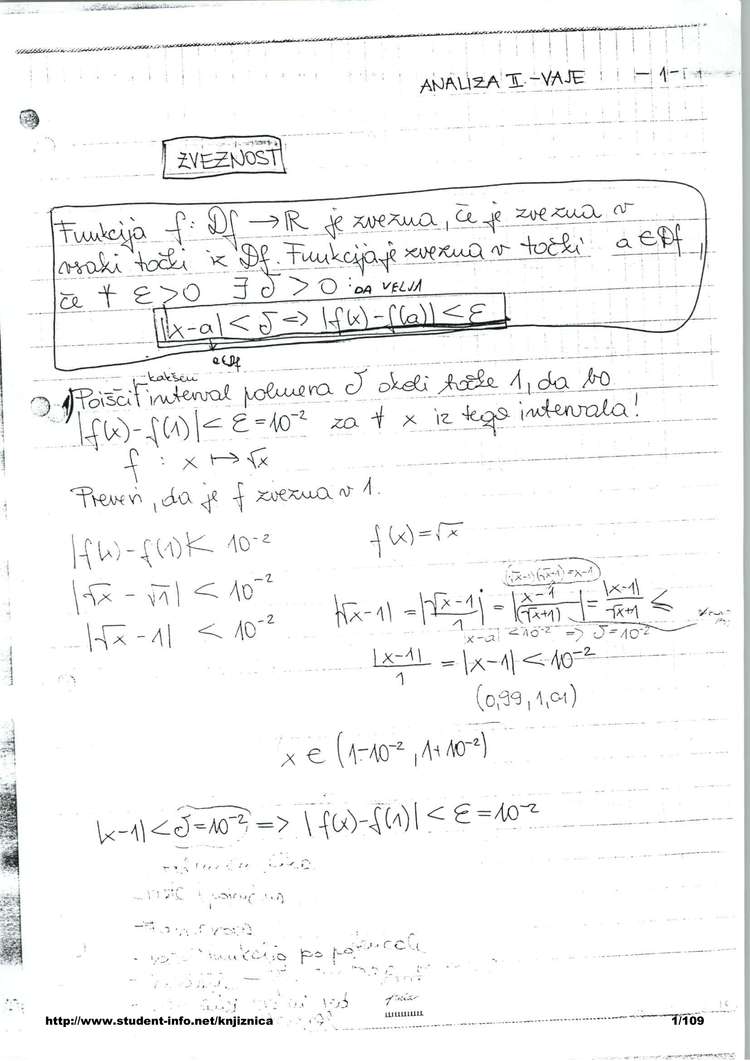 ANALIZA II.-VAJE -1-
ZVEZNOST
Funkcija f: Df → R je zvezna, če je zvezna v
vsaki točki iz Df. Funkcija je zvezna v točki a ∈ Df,
če ∀ ε>0 ∃ δ>0 : DA VELJA
|x-a| < δ => |f(x)-f(a)| < ε
a∈Df
kakšen
1) Poišči interval polmera δ okoli točke 1, da bo
|f(x)-f(1)| < ε = 10⁻² za ∀ x iz tega intervala!
f : x ↦ √x
Preveri, da je f zvezna v 1.
|f(x)-f(1)| < 10⁻² f(x)=√x
|√x - √1| < 10⁻²
|√x - 1| < 10⁻²
(√x-1)(√x+1)=x-1
|√x-1| = |√x-1 / 1| = |x-1 / (√x+1)| = |x-1| / √x+1 ≤
|x-a| < 10⁻² => δ=10⁻²
|x-1| / 1 = |x-1| < 10⁻²
(0,99, 1,01)
x ∈ (1-10⁻², 1+10⁻²)
|x-1| < δ=10⁻² => |f(x)-f(1)| < ε = 10⁻²
http://www.student-info.net/knjiznica 1/109